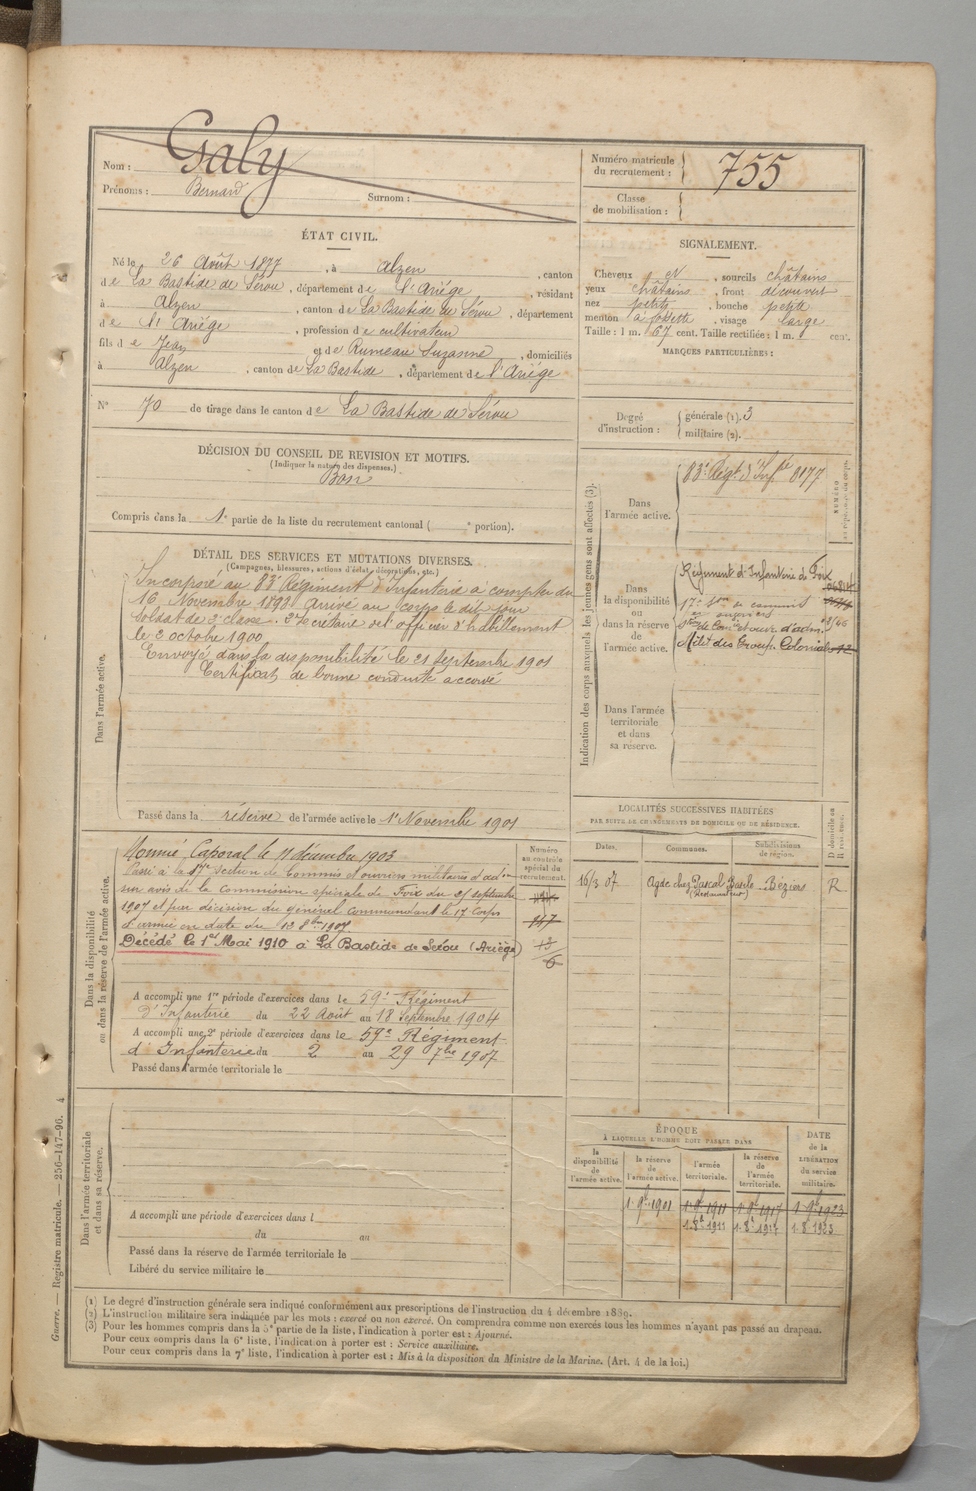 Nom : Galy
Prénoms : Bernard Surnom :
Numéro matricule du recrutement : 755
Classe de mobilisation :
ÉTAT CIVIL.
Né le 26 Août 1877, à Alzen, canton
de La Bastide de Sérou, département de l'Ariége, résidant
à Alzen, canton de La Bastide de Sérou, département
de l'Ariége, profession de cultivateur
fils de Jean et de Rumeau Suzanne, domiciliés
à Alzen, canton de La Bastide, département de l'Ariége
N° 70 de tirage dans le canton de La Bastide de Sérou
SIGNALEMENT.
Cheveux N, sourcils châtains
yeux châtains, front découvert
nez petit, bouche petite
menton à fossette, visage large
Taille : 1 m. 67 cent. Taille rectifiée : 1 m. cent.
MARQUES PARTICULIÈRES :
Degré d'instruction : générale (1). 3
militaire (2).
DÉCISION DU CONSEIL DE REVISION ET MOTIFS.
(Indiquer la nature des dispenses.)
Bon
Compris dans la 1e partie de la liste du recrutement cantonal ( e portion).
DÉTAIL DES SERVICES ET MUTATIONS DIVERSES.
(Campagnes, blessures, actions d'éclat, décorations, etc.)
Dans l'armée active.
Incorporé au 83e Régiment d'Infanterie à compter du
16 Novembre 1898. Arrivé au corps le dit jour
Soldat de 2e classe. Secrétaire de l'officier d'habillement
le 2 octobre 1900
Envoyé dans la disponibilité le 21 Septembre 1901
Certificat de bonne conduite accordé
Passé dans la réserve de l'armée active le 1er Novembre 1901
Indication des corps auxquels les jeunes gens sont affectés (3).
NUMÉRO
Dans l'armée active.
83e Régt d'Infie 8177
Dans la disponibilité ou dans la réserve de l'armée active.
Régiment d'Infanterie de Foix
17e
Milit des Troupes Coloniales
Dans l'armée territoriale et dans sa réserve.
Dans la disponibilité ou dans la réserve de l'armée active.
Nommé Caporal le 11 décembre 1903
Passé à la 17e Section de Commis et ouvriers militaires d'adon
sur avis de la Commission spéciale de Foix du 21 septembre
1907 et par décision du général commandant le 17e Corps
d'armée en date du 13 8bre 1907
Décédé le 1er Mai 1910 à La Bastide de Sérou (Ariège)
Numéro au contrôle spécial du recrutement.
A accompli une 1re période d'exercices dans le 59e Régiment
d'Infanterie du 22 Août au 18 Septembre 1904
A accompli une 2e période d'exercices dans le 59e Régiment
d'Infanterie du 2 au 29 7bre 1907
Passé dans l'armée territoriale le
LOCALITÉS SUCCESSIVES HABITÉES
PAR SUITE DE CHANGEMENTS DE DOMICILE OU DE RÉSIDENCE.
Dates. Communes. Subdivisions de région. D domicile ou R résidence.
16/3 07 Agde chez Pascal Basile Béziers R
Dans l'armée territoriale et dans sa réserve.
A accompli une période d'exercices dans l
du au
Passé dans la réserve de l'armée territoriale le
Libéré du service militaire le
ÉPOQUE
À LAQUELLE L'HOMME DOIT PASSER DANS
la disponibilité de l'armée active.
la réserve de l'armée active.
l'armée territoriale.
la réserve de l'armée territoriale.
DATE de la LIBÉRATION du service militaire.
1. 9bre 1901 1. 9bre 1911 1. 9bre 1917 1. 9bre 1923
1. 8e 1911 1. 8e 1917 1. 8 1923
(1) Le degré d'instruction générale sera indiqué conformément aux prescriptions de l'instruction du 4 décembre 1889.
(2) L'instruction militaire sera indiquée par les mots : exercé ou non exercé. On comprendra comme non exercés tous les hommes n'ayant pas passé au drapeau.
(3) Pour les hommes compris dans la 5e partie de la liste, l'indication à porter est : Ajourné.
Pour ceux compris dans la 6e liste, l'indication à porter est : Service auxiliaire.
Pour ceux compris dans la 7e liste, l'indication à porter est : Mis à la disposition du Ministre de la Marine. (Art. 4 de la loi.)
Guerre. — Registre matricule. — 256-147-96. 4